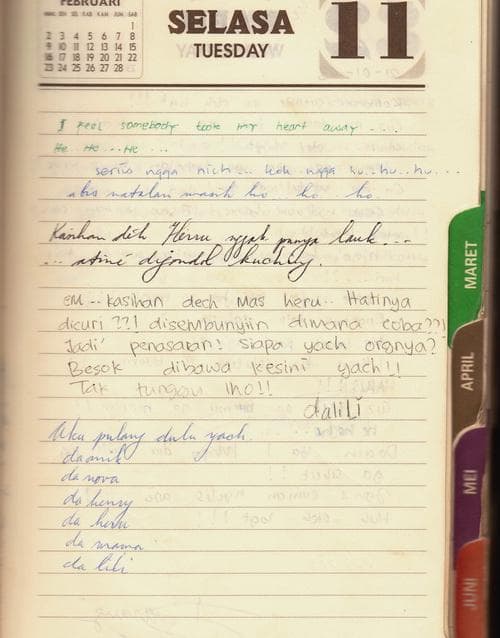 FEBRUARI
MING SEN SEL RAB KAM JUM SAB
1
2 3 4 5 6 7 8
9 10 11 12 13 14 15
16 17 18 19 20 21 22
23 24 25 26 27 28
SELASA
TUESDAY
11
I feel somebody took my heart away ....
He.. He... He...
serius ngga nich... kok ngga hu.. hu.. hu...
abis natalan masih ho.. ho.. ho..
Kasihan deh Herru ngak punya lauk...
... atiné digondol kucing.
EM.. kasihan dech Mas heru.. Hatinya
dicuri ??! disembunyiin dimana coba??!
Jadi' penasaran! siapa yach orgnya?
Besok dibawa kesini yach!!
Tak tunggu lho!!
daLiLi
Aku pulang dulu yach.
da anik
da nova
da henry
da heru
da mama
da lili
MARET
APRIL
MEI
JUNI